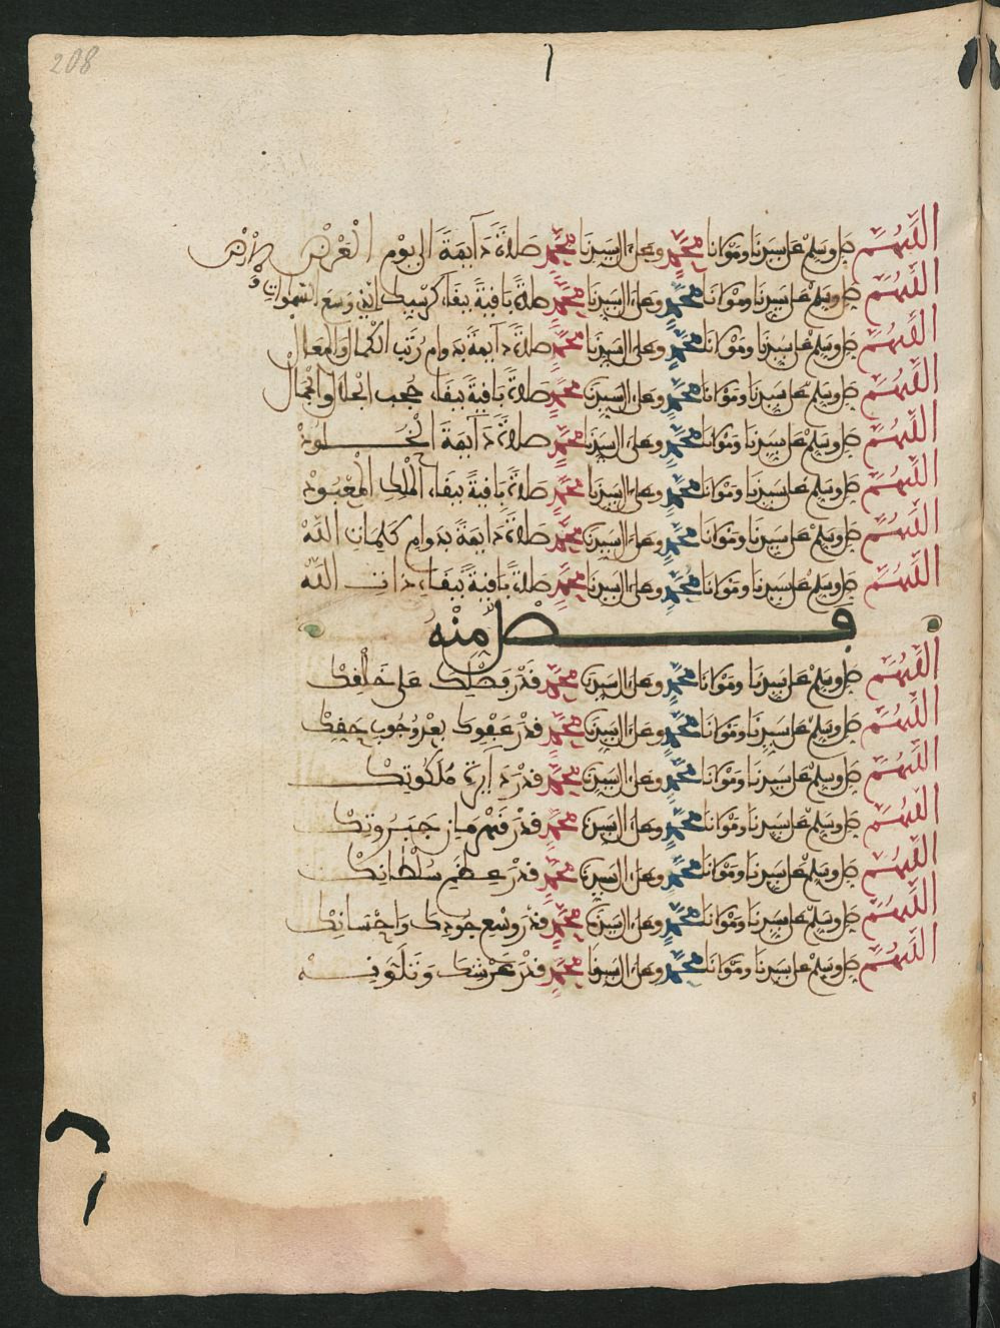 208
اللهم صل وسلم على سيدنا ومولانا محمد وعلى ءال سيدنا محمد صلاة دآيمة الى يوم العرض
اللهم صل وسلم على سيدنا ومولانا محمد وعلى ءال سيدنا محمد صلاة باقية ببقاء كرسيك الذي وسع السموات و الارض
اللهم صل وسلم على سيدنا ومولانا محمد وعلى ءال سيدنا محمد صلاة دآيمة بدوام رتب الكمال والمعال
اللهم صل وسلم على سيدنا ومولانا محمد وعلى ءال سيدنا محمد صلاة باقية ببقاء حجب الجلال والجمال
اللهم صل وسلم على سيدنا ومولانا محمد وعلى ءال سيدنا محمد صلاة دآيمة الخلود
اللهم صل وسلم على سيدنا ومولانا محمد وعلى ءال سيدنا محمد صلاة باقية ببقاء الملك المعبود
اللهم صل وسلم على سيدنا ومولانا محمد وعلى ءال سيدنا محمد صلاة دايمة بدوام كلمات الله
اللهم صل وسلم على سيدنا ومولانا محمد وعلى ءال سيدنا محمد صلاة باقية ببقاء ذات الله
فصل منه
اللهم صل وسلم على سيدنا ومولانا محمد وعلى ءال سيدنا محمد قدر فضلك على خلقك
اللهم صل وسلم على سيدنا ومولانا محمد وعلى ءال سيدنا محمد قدر عفوك بعد وجوب حقك
اللهم صل وسلم على سيدنا ومولانا محمد وعلى ءال سيدنا محمد قدر دايرة ملكوتك
اللهم صل وسلم على سيدنا ومولانا محمد وعلى ءال سيدنا محمد قدر قهرمان جبروتك
اللهم صل وسلم على سيدنا ومولانا محمد وعلى ءال سيدنا محمد قدر عظم سلطانك
اللهم صل وسلم على سيدنا ومولانا محمد وعلى ءال سيدنا محمد قدر وسع جودك واحسانك
اللهم صل وسلم على سيدنا ومولانا محمد وعلى ءال سيدنا محمد قدر عرشك وتلوينه